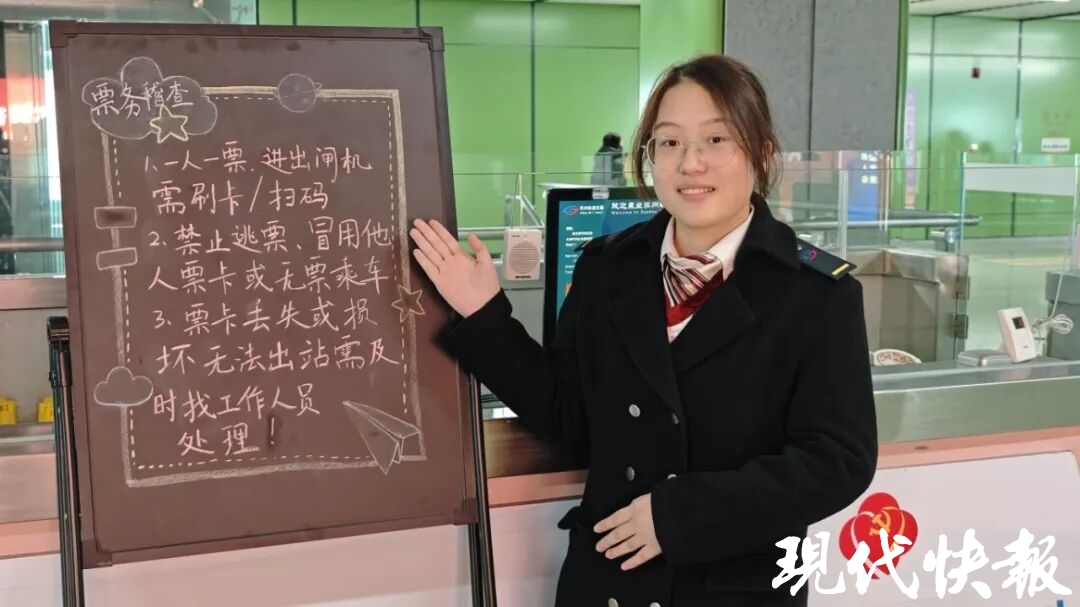 票务稽查
1.一人一票.进出闸机
需刷卡/扫码
2.禁止逃票.冒用他
人票卡或无票乘车
3.票卡丢失或损
坏无法出站需及
时找工作人员
处理!
现代快报